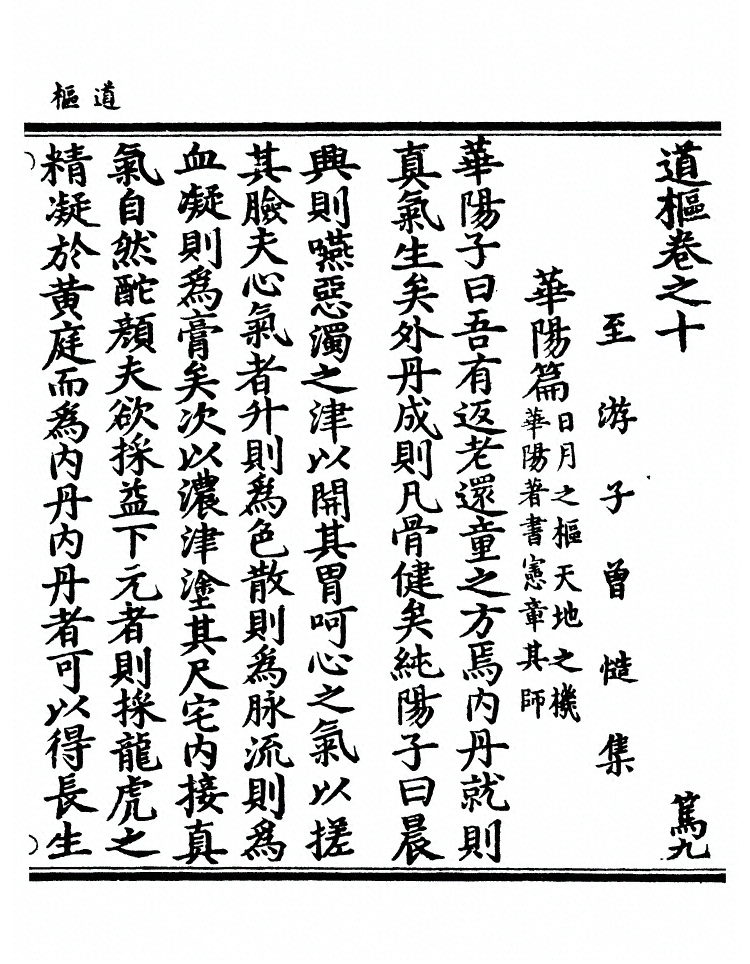 道樞
道樞卷之十 篤九
至游子曾慥集
華陽篇 日月之樞天地之機
華陽著書憲章其師
華陽子曰吾有返老還童之方焉内丹就則
真氣生矣外丹成則凡骨健矣純陽子曰晨
興則嚥惡濁之津以開其胃呵心之氣以搓
其臉夫心氣者升則爲色散則爲脉流則爲
血凝則爲膏矣次以濃津塗其尺宅内接真
氣自然酡顔夫欲採益下元者則採龍虎之
精凝於黄庭而爲内丹内丹者可以得長生